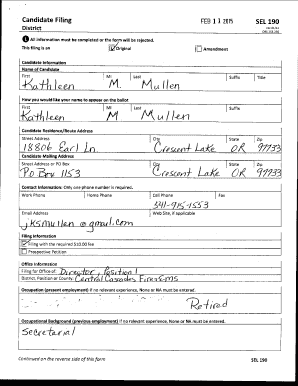 Candidate Filing
District
FEB 11 2015
SEL 190
All information must be completed or the form will be rejected.
This filing is an
Original
Amendment
Candidate Information
Name of Candidate
First MI Last Suffix Title
Kathleen M. Mullen
How you would like your name to appear on the ballot
First MI Last Suffix
Kathleen M Mullen
Candidate Residence/Route Address
Street Address City State Zip
18806 Earl Ln Crescent Lake OR 97733
Candidate Mailing Address
Street Address or PO Box City State Zip
PO Box 1153 Crescent Lake OR 97733
Contact Information: Only one phone number is required.
Work Phone Home Phone Cell Phone Fax
541-915-1553
Email Address Web Site, if applicable
jksmullen@gmail.com
Filing Information
Filing with the required $10.00 fee
Prospective Petition
Office Information
Filing for Office of: Director, Position 1
District, Position or County: Central Cascades Fire & EMS
Occupation (present employment) if no relevant experience, None or NA must be entered.
Retired
Occupational Background (previous employment) if no relevant experience, None or NA must be entered.
Secretarial
Continued on the reverse side of this form
SEL 190